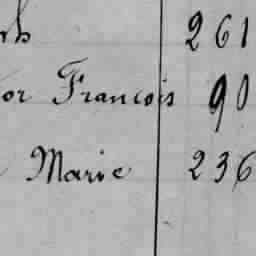 261
or François 90
Marie 236